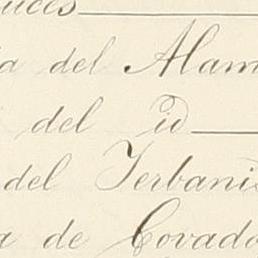 uces
a del Alam
del id
del Terbanis
a de Covado